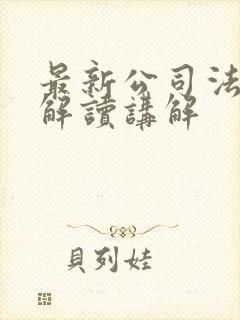 最新公司法
解讀講解
貝列娃